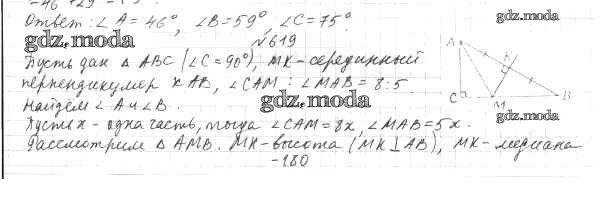 -46 +29 -
Ответ: ∠A = 46°, ∠B = 59°, ∠C = 75°.
gdz.moda
gdz.moda
№619
Пусть дан △ ABC (∠C = 90°), MK - серединный
перпендикуляр к AB, ∠CAM : ∠MAB = 8:5
Найдём ∠A и ∠B.
gdz.moda
Пусть x - одна часть, тогда ∠CAM = 8x, ∠MAB = 5x.
Рассмотрим △ AMB. MK - высота (MK ⊥ AB), MK - медиана
-180
A
K
C
M
B
gdz.moda